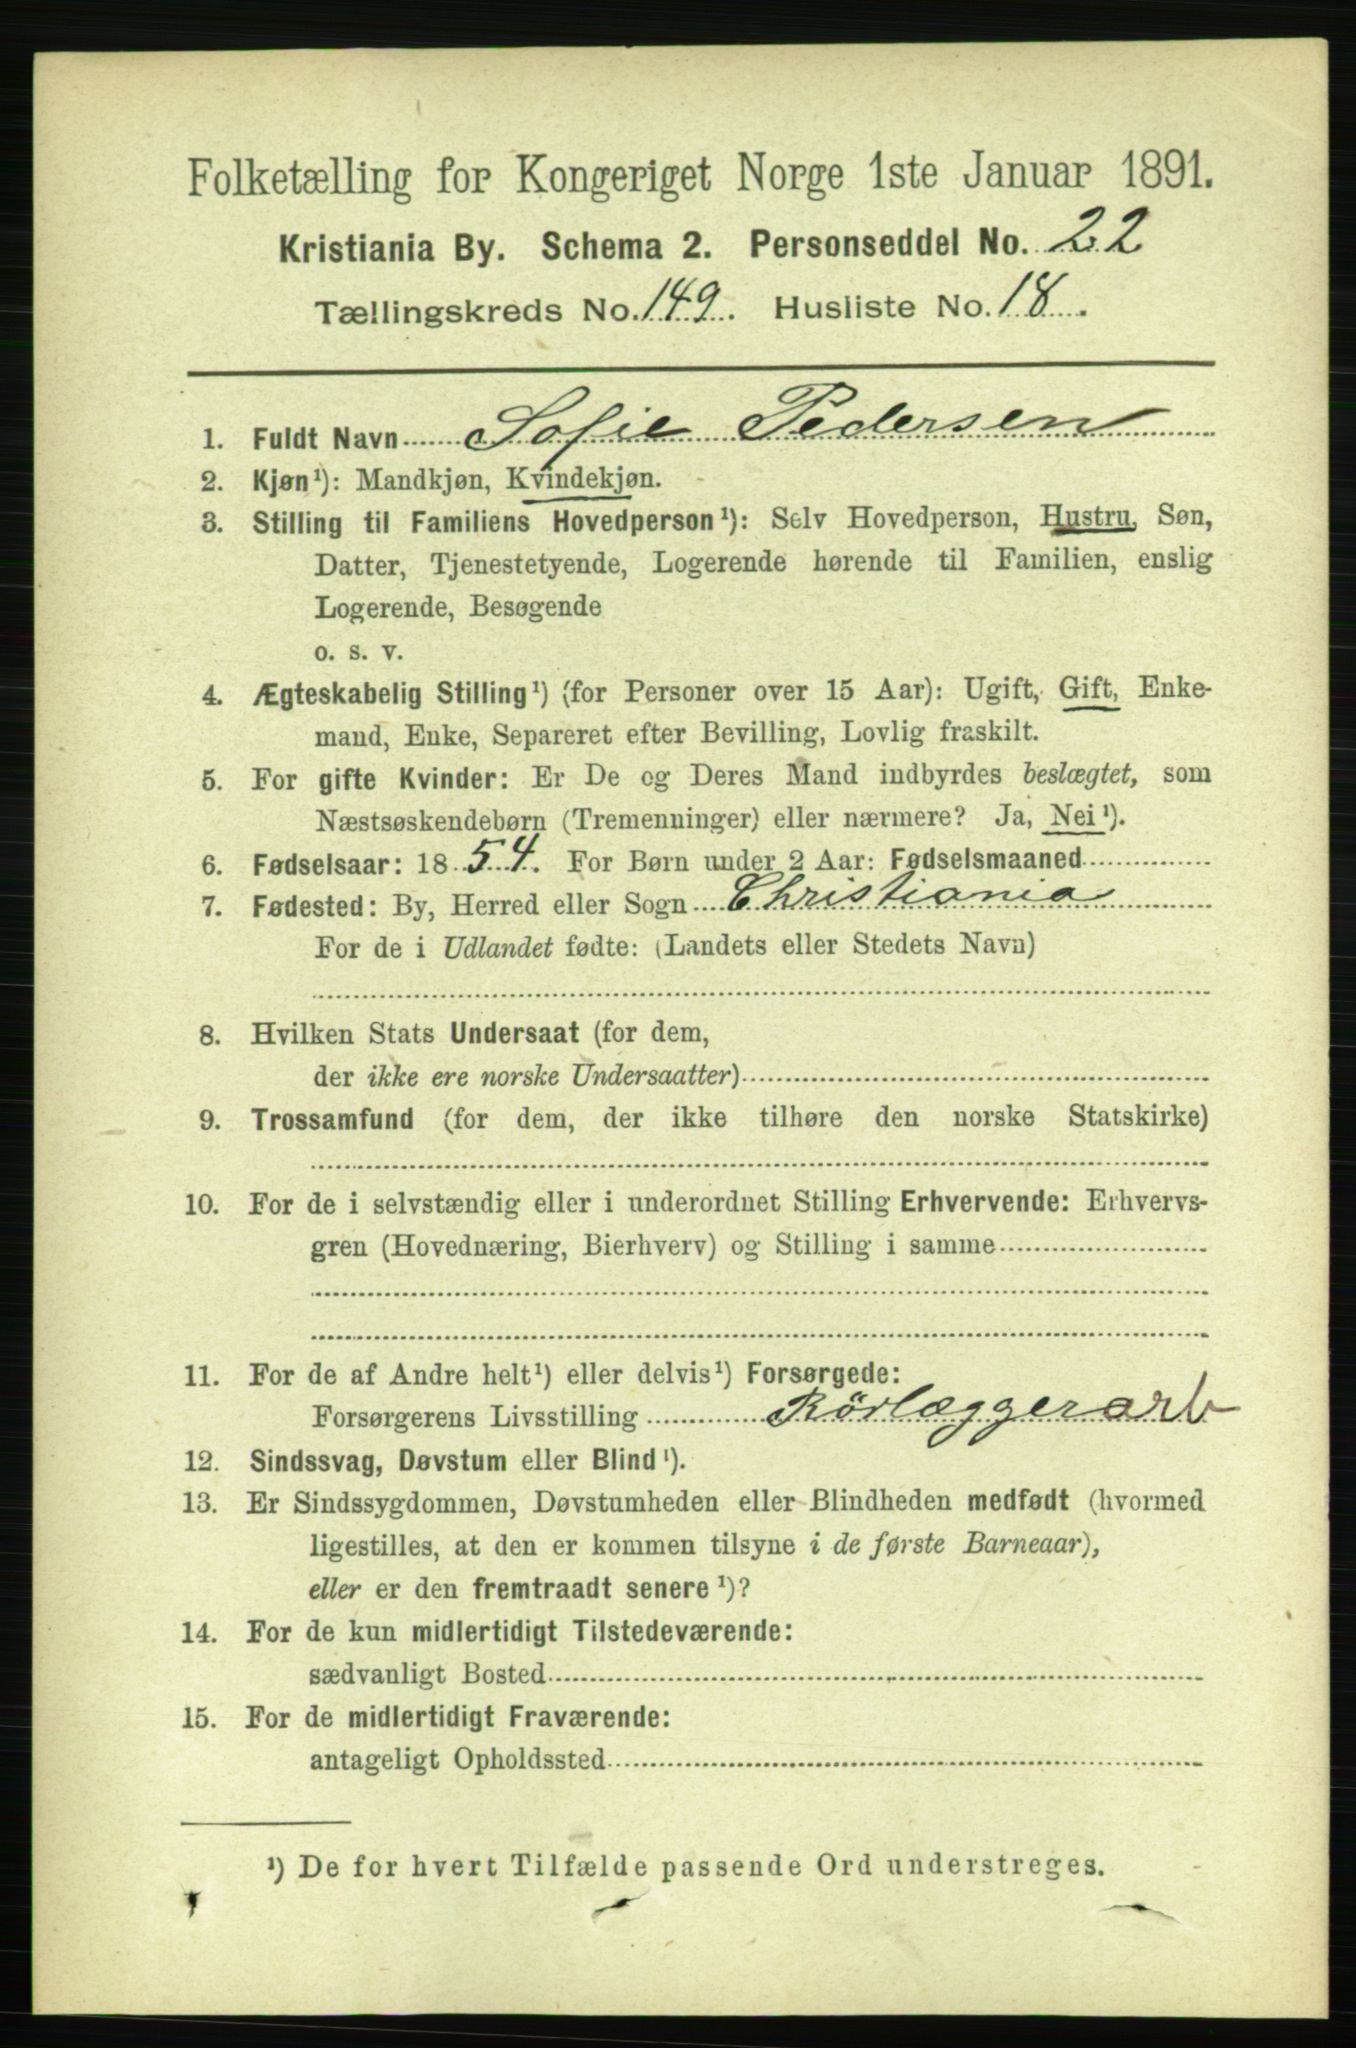 Folketælling for Kongeriget Norge 1ste Januar 1891.
Kristiania By. Schema 2. Personseddel No. 22
Tællingskreds No. 149. Husliste No. 18.
1. Fuldt Navn Sofie Pedersen
2. Kjøn¹): Mandkjøn, Kvindekjøn.
3. Stilling til Familiens Hovedperson¹): Selv Hovedperson, Hustru, Søn,
Datter, Tjenestetyende, Logerende hørende til Familien, enslig
Logerende, Besøgende
o. s. v.
4. Ægteskabelig Stilling¹) (for Personer over 15 Aar): Ugift, Gift, Enke-
mand, Enke, Separeret efter Bevilling, Lovlig fraskilt.
5. For gifte Kvinder: Er De og Deres Mand indbyrdes beslægtet, som
Næstsøskendebørn (Tremenninger) eller nærmere? Ja, Nei¹).
6. Fødselsaar: 1854. For Børn under 2 Aar: Fødselsmaaned
7. Fødested: By, Herred eller Sogn Christiania
For de i Udlandet fødte: (Landets eller Stedets Navn)
8. Hvilken Stats Undersaat (for dem,
der ikke ere norske Undersaatter)
9. Trossamfund (for dem, der ikke tilhøre den norske Statskirke)
10. For de i selvstændig eller i underordnet Stilling Erhvervende: Erhvervs-
gren (Hovednæring, Bierhverv) og Stilling i samme
11. For de af Andre helt¹) eller delvis¹) Forsørgede:
Forsørgerens Livsstilling Rörlæggerarb
12. Sindssvag, Døvstum eller Blind¹).
13. Er Sindssygdommen, Døvstumheden eller Blindheden medfødt (hvormed
ligestilles, at den er kommen tilsyne i de første Barneaar),
eller er den fremtraadt senere¹)?
14. For de kun midlertidigt Tilstedeværende:
sædvanligt Bosted
15. For de midlertidigt Fraværende:
antageligt Opholdssted
¹) De for hvert Tilfælde passende Ord understreges.